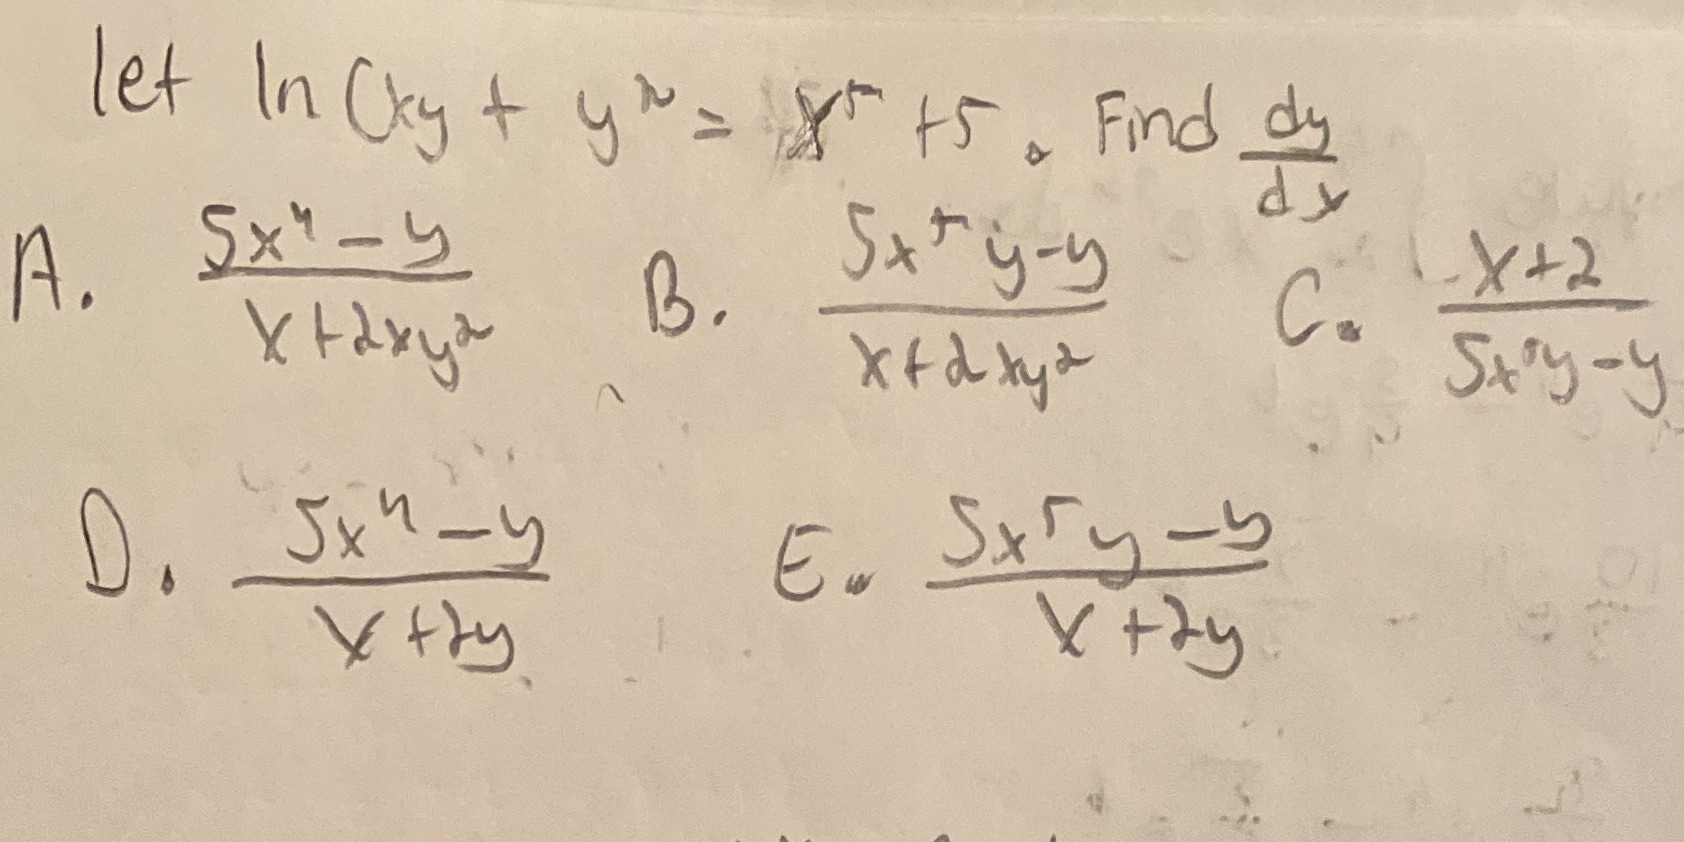 let ln (xy + y² = x⁵ +5. Find dy/dx
A. (5x⁴ - y)/(x + 2xy²) B. (5x⁵y - y)/(x + 2xy²) C. (x+2)/(5x⁵y - y)
D. (5x⁴ - y)/(x + 2y) E. (5x⁵y - y)/(x + 2y)